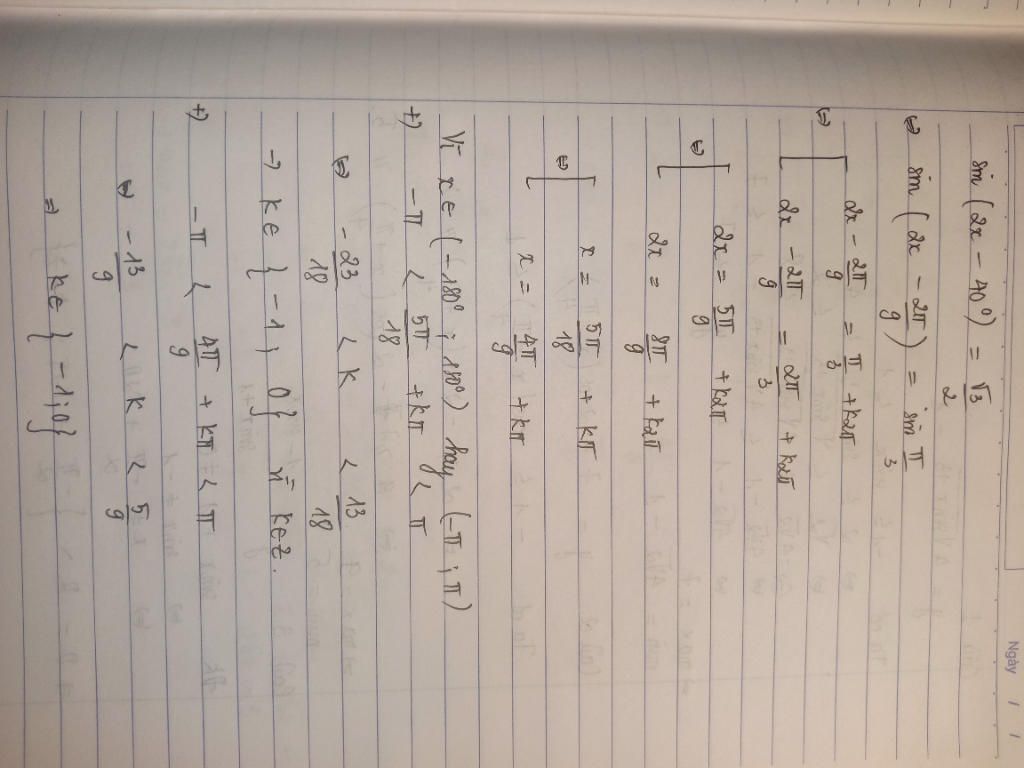 Ngày / /
sin(2x - 40°) = √3/2
⇔ sin(2x - 2π/9) = sin π/3
⇔ [ 2x - 2π/9 = π/3 + k2π
2x - 2π/9 = 2π/3 + k2π
⇔ [ 2x = 5π/9 + k2π
2x = 8π/9 + k2π
⇔ [ x = 5π/18 + kπ
x = 4π/9 + kπ
Vì x ∈ (-180° ; 180°) hay (-π ; π)
+) -π < 5π/18 + kπ < π
⇔ -23/18 < k < 13/18
→ k ∈ { -1 ; 0 } vì k ∈ z.
+) -π < 4π/9 + kπ < π
⇔ -13/9 < k < 5/9
⇒ k ∈ { -1 ; 0 }